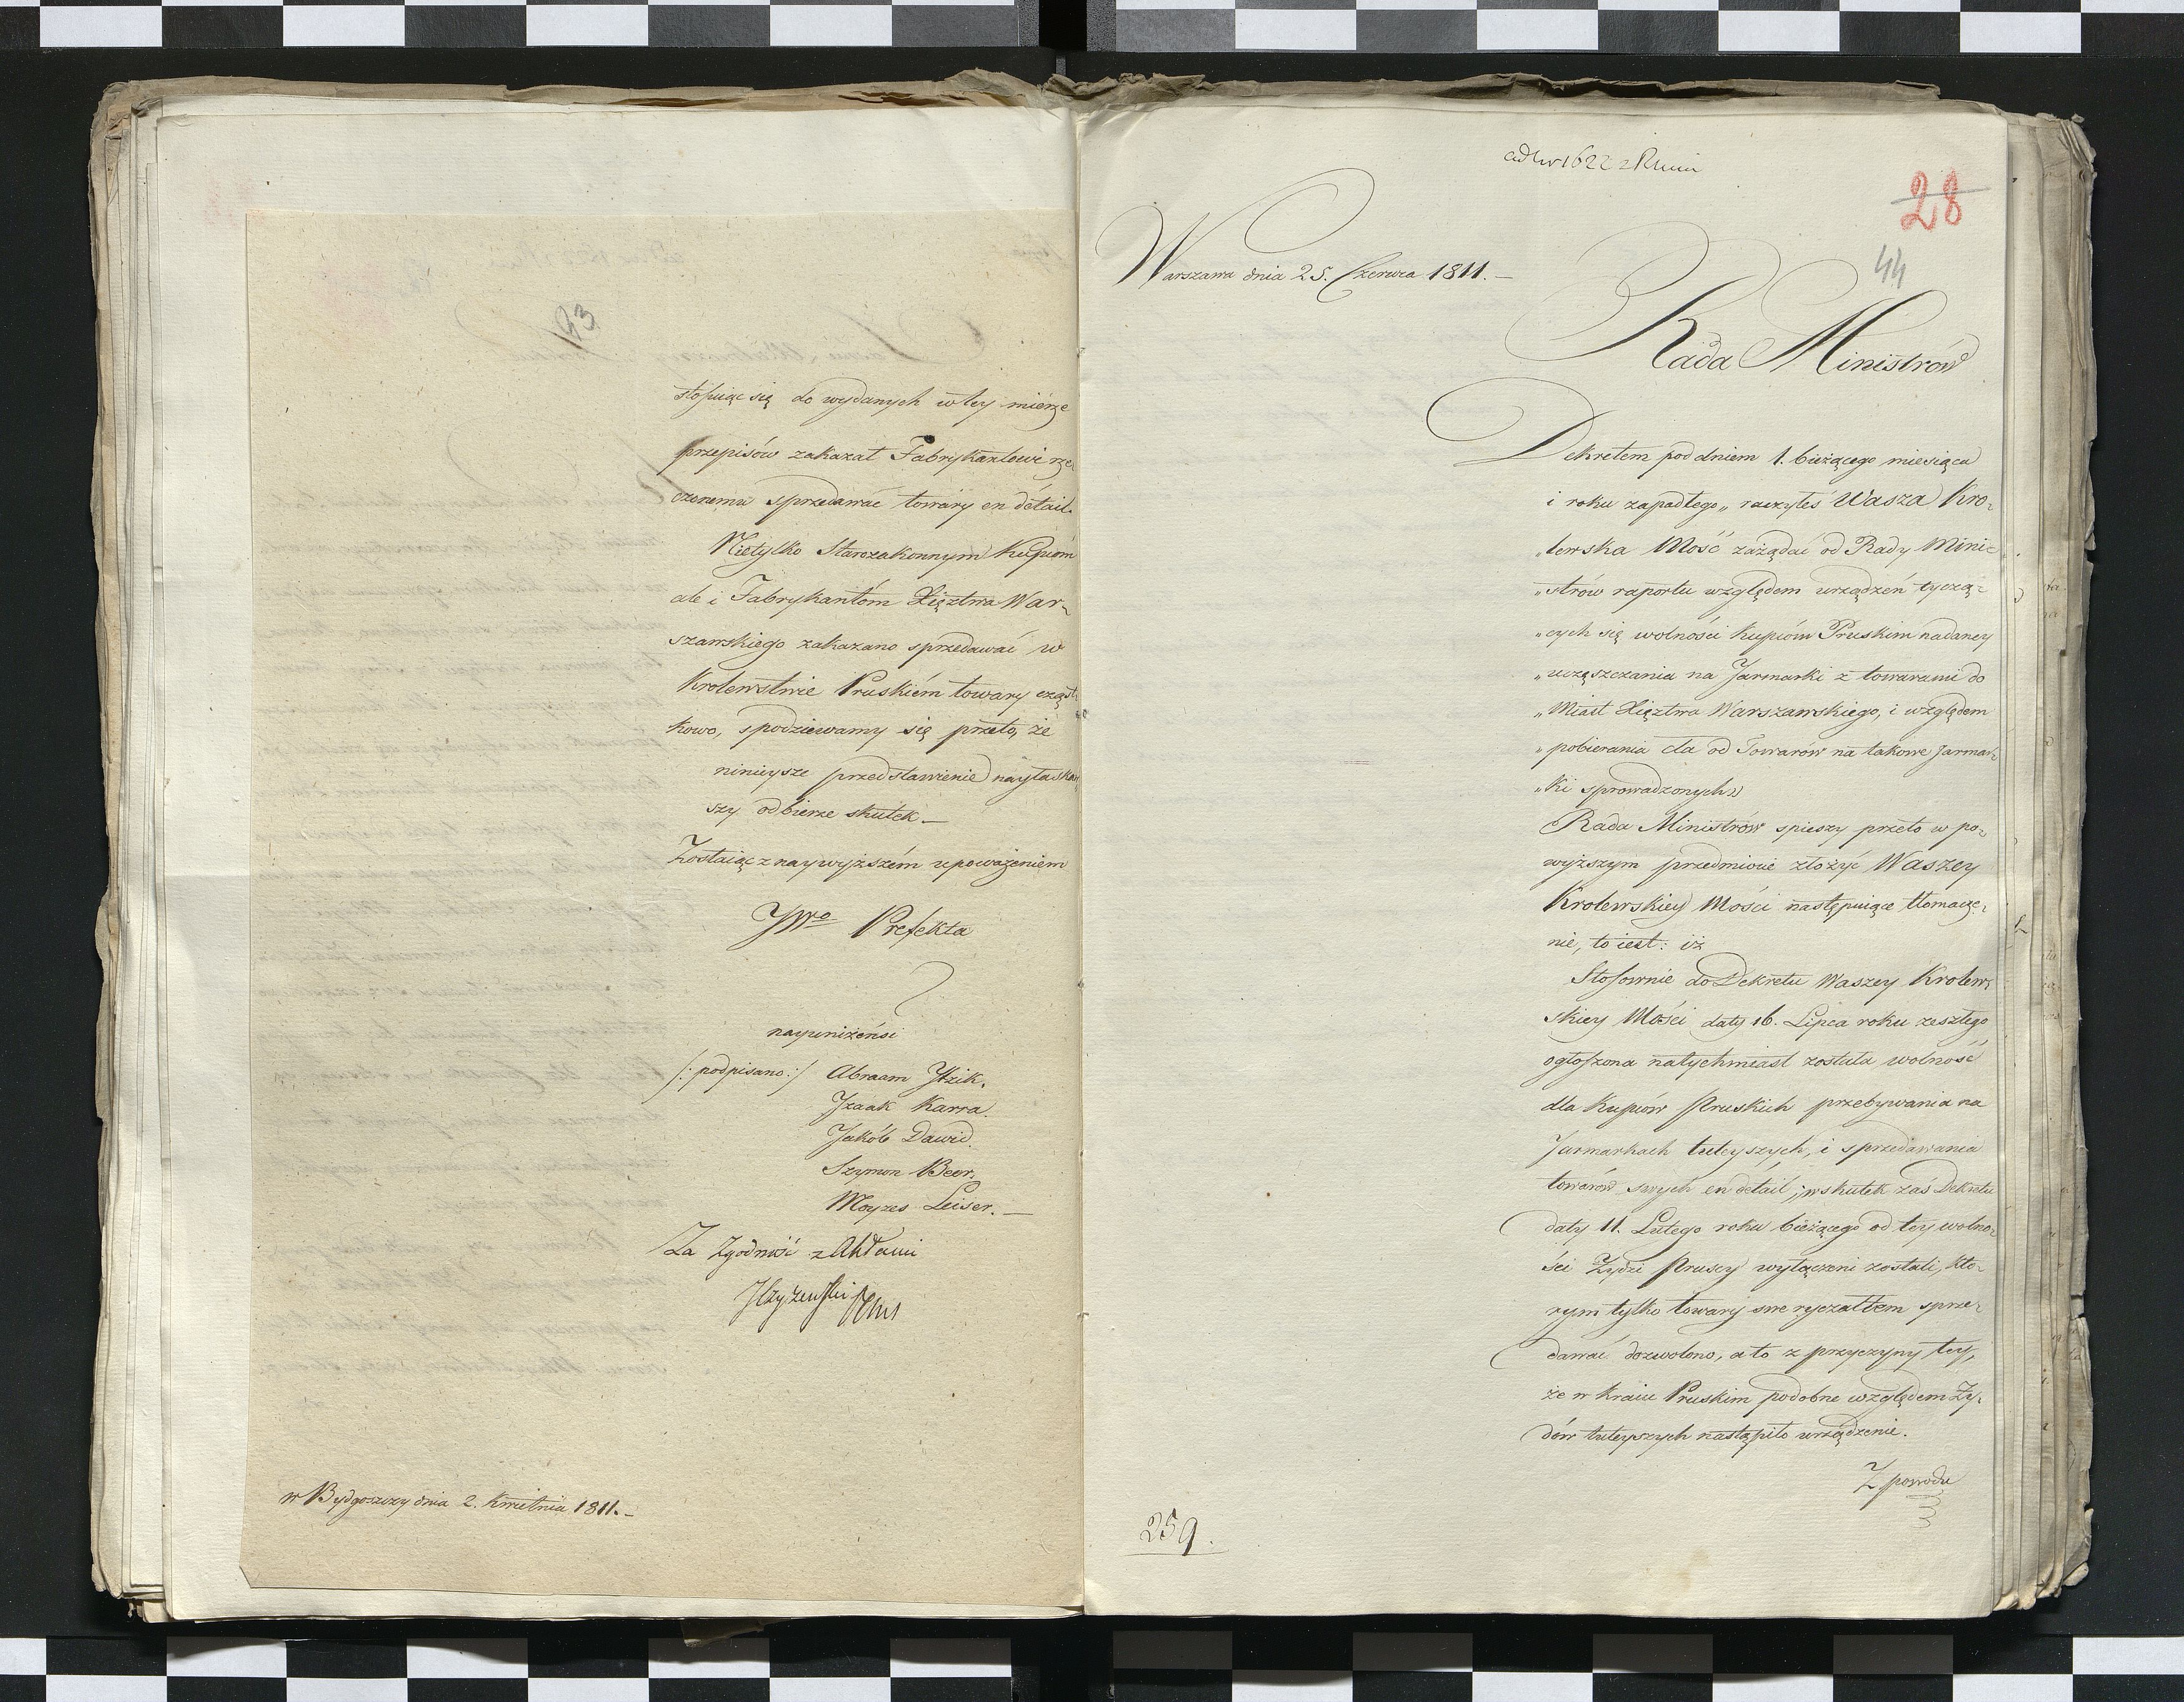 43
stosuiąc się do wydanych w tey mierze
przepisów zakazał Fabrykantowi rze„
czonemu sprzedawać towary en détail.
Nietylko Starozakonnym Kupcom
ale i Fabrykantom Xięztwa War„
szawskiego zakazano sprzedawać w
Krolewstwie Pruskiém towary cząst„
kowo, spodziewamy się przeto, że
ninieysze przedstawienie nayłaskaw„
szy odbierze skutek –
Zostaiąc z naywyższém upoważeniem
JWo Prefekta
nayuniżeńsi
/: podpisano :/ Abraam Itzik.
Izaak Karra.
Jakób Dawid.
Szymon Beer.
Moyzes Leiser. –
Za Zgodność z Aktami
w Bydgoszczy dnia 2. Kwietnia 1811. –
ad Nr 1622
28
44
Warszawa dnia 25. Czerwca 1811. –
Rada Ministrów
Dekretem pod dniem 1. bieżącego miesiąca
i roku zapadłego „ raczyłeś Wasza Kro„
„lewska Mość zażądać od Rady Mini„
„strów raportu względem urządzeń tyczą„
„cych się wolności Kupcóm Pruskim nadaney
„uczęszczania na Jarmarki z towarami do
„Miast Xięztwa Warszawskiego, i względem
„pobierania cła od Towarów na takowe Jarmar„
„ki sprowadzonych„
Rada Ministrów spieszy przeto w po„
wyższym przedmiocie złożyć Waszey
Krolewskiey Mości następuiące tłomacze„
nie, to iest: iż
Stosownie do Dekretu Waszey Krolew„
skiey Mości daty 16. Lipca roku zeszłego
ogłoszona natychmiast została wolność
dla Kupców Pruskich przebywania na
Jarmarkach tuteyszych, i sprzedawania
towarów swych en détail; w skutek zaś Dekretu
daty 11. Lutego roku bieżącego od tey wolno„
ści Żydzi Pruscy wyłączeni zostali, któ„
rym tylko towary swe ryczałtem sprze„
dawać dozwolono, a to z przyczyny tey,
że w Kraiu Pruskim podobne względem Ży„
dów tuteyszych nastąpiło urządzenie.
Z powodu
259.